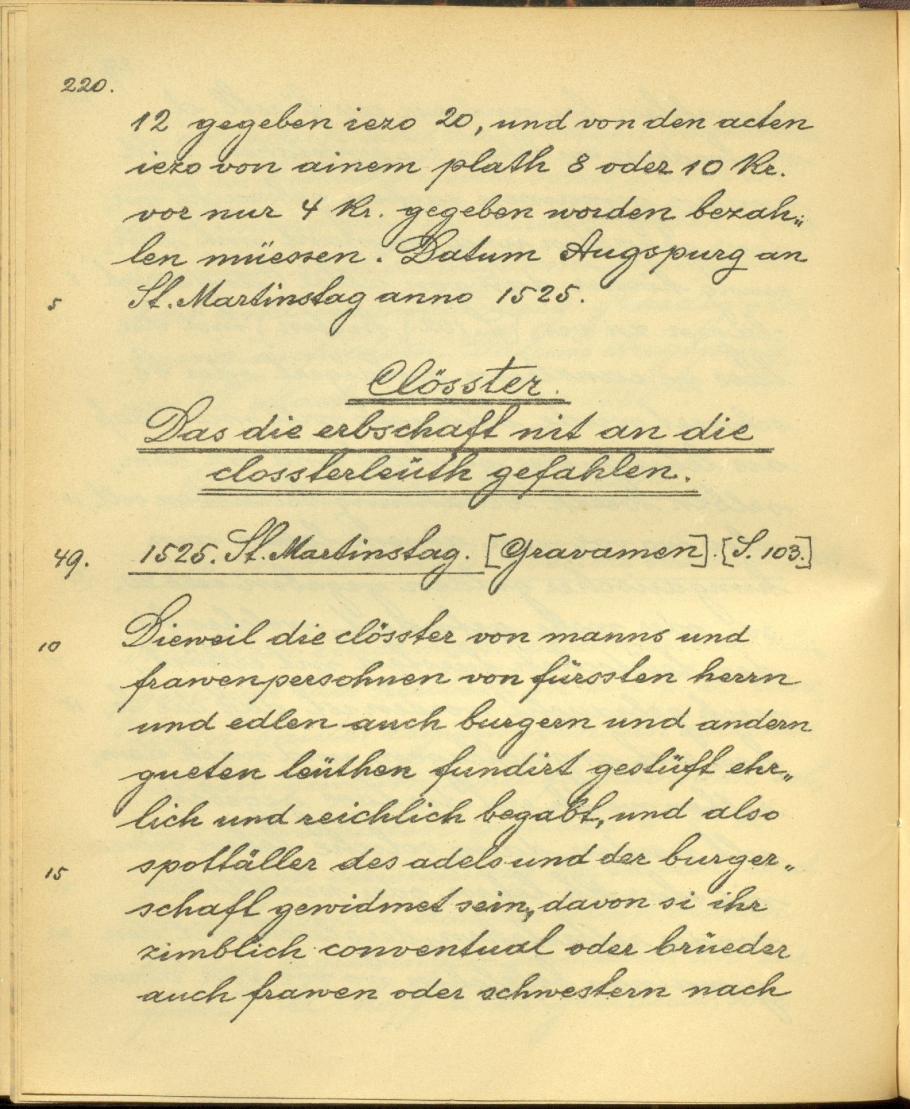 220.
12 gegeben iezo 20, und von den acten
iezo von ainem plath 8 oder 10 Kr.
vor nur 4 Kr. gegeben worden bezah„
len müessen. Datum Augspurg an
5 St. Martinstag anno 1525.
Clösster.
Das die erbschaft nit an die
clossterleüth gefahlen.
49. 1525. St. Martinstag. [Gravamen]. [S. 103.]
10 Dieweil die clösster von manns und
frawenpersohnen von fürssten herrn
und edlen auch burgern und andern
gueten leüthen fundirt gestüft ehr„
lich und reichlich begabt, und also
15 spottäller des adels und der burger„
schaft gewidmet sein, davon si ihr
zimblich conventual oder brüeder
auch frawen oder schwestern nach